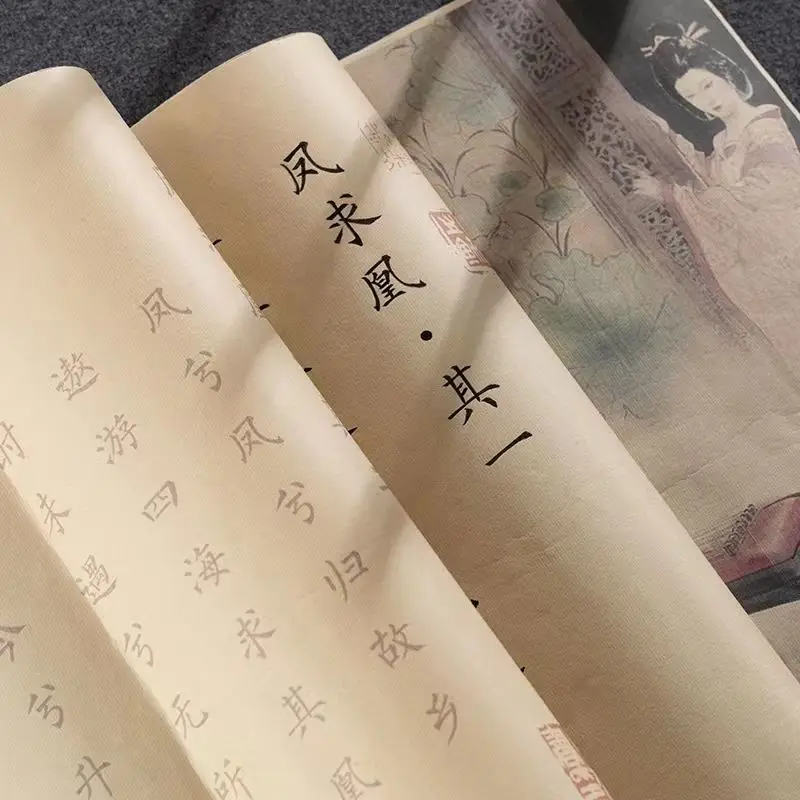 凤求凰·其一
凤兮凤兮归故乡
遨游四海求其凰
时未遇兮无所
今兮升